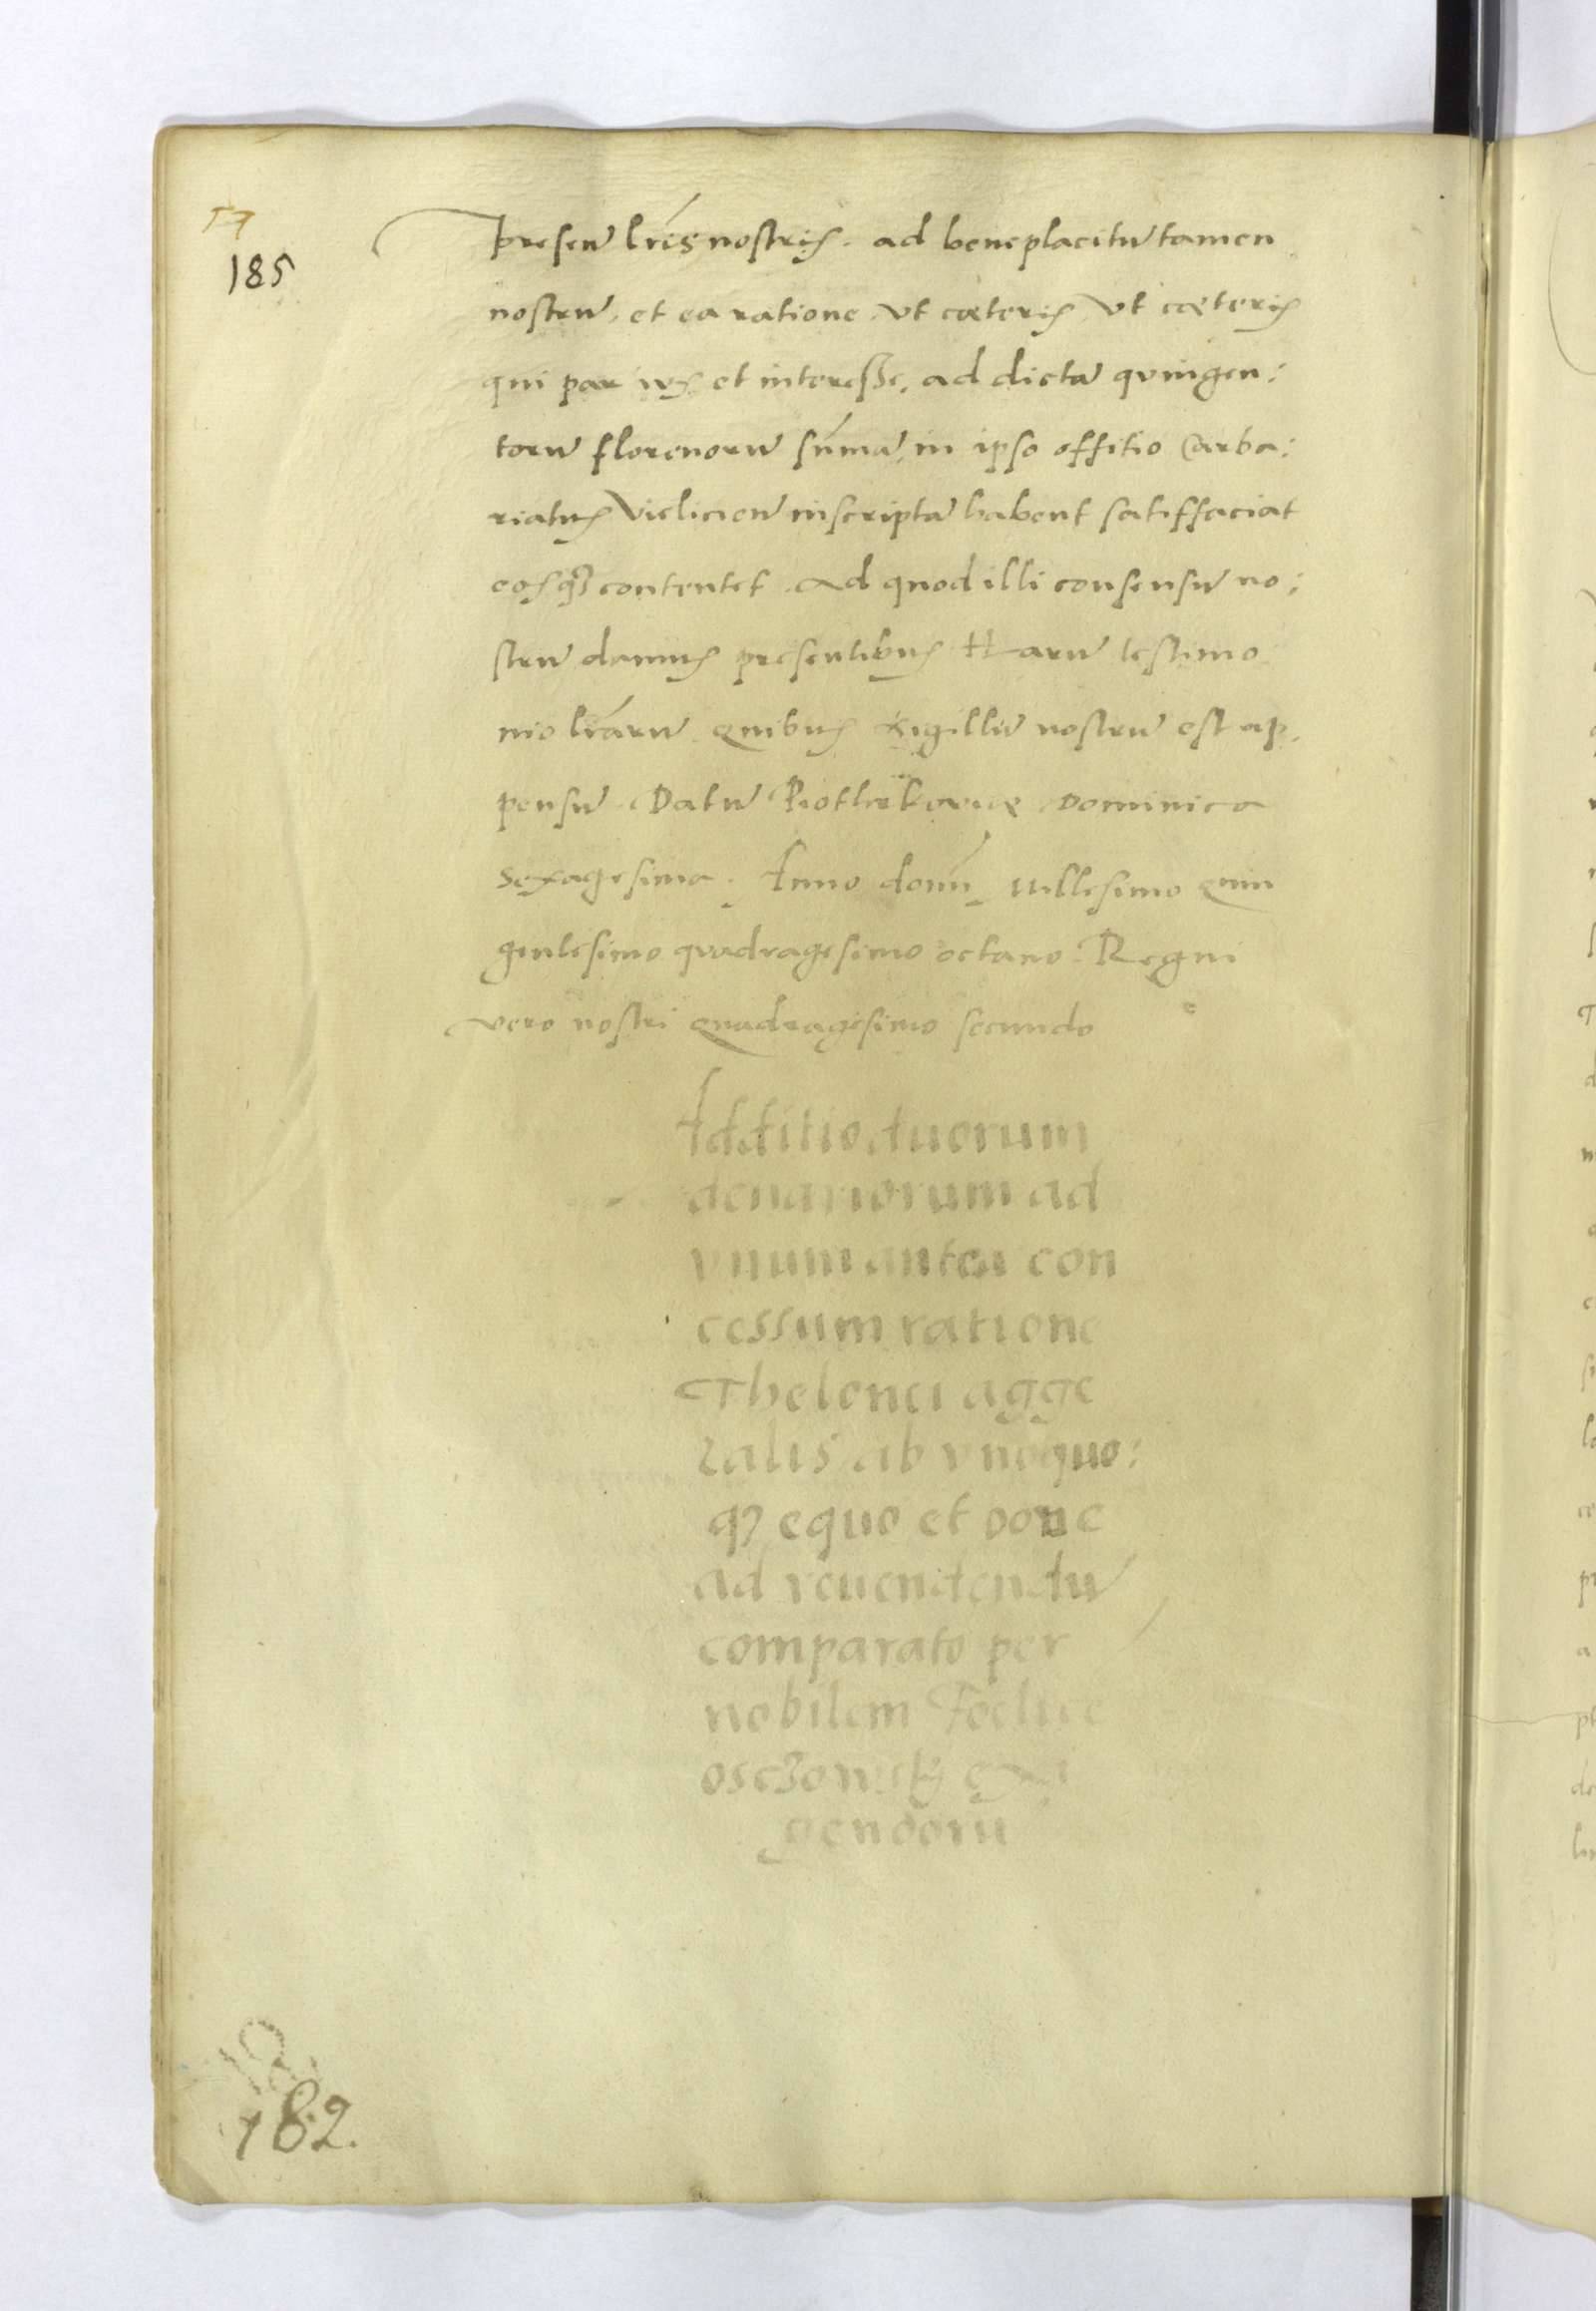 77
185
presen lr̃is nostris. ad beneplacitū tamen
nostrū. et ea ratione. vt cæteris vt cæteris
qui par ius et interesse. ad dictā quingen:
torū florenorū sum̄ā, in ipso offitio Carba:
riatus vielicien inscriptā habent satisfaciat
eosqꝫ contentet. ad quod illi consensū no:
strū damus presentibus Harū testimo:
nio lr̃arū quibus sigillū nostrū est ap,
pensū. Datū Piothrkoviæ Dominica
sexagesima. Anno domī Millesimo quin
gentesimo quadragesimo octavo: Regni
vero nostri quadragesimo secundo
Additio duorum
denariorum ad
vnum antea con
cessum ratione
Thelonei agge
ralis ab vnoquo:
qꝫ equo et boue
ad reuendendū
comparato per
nobilem Foelice
osczowski exi
gendorū
182.